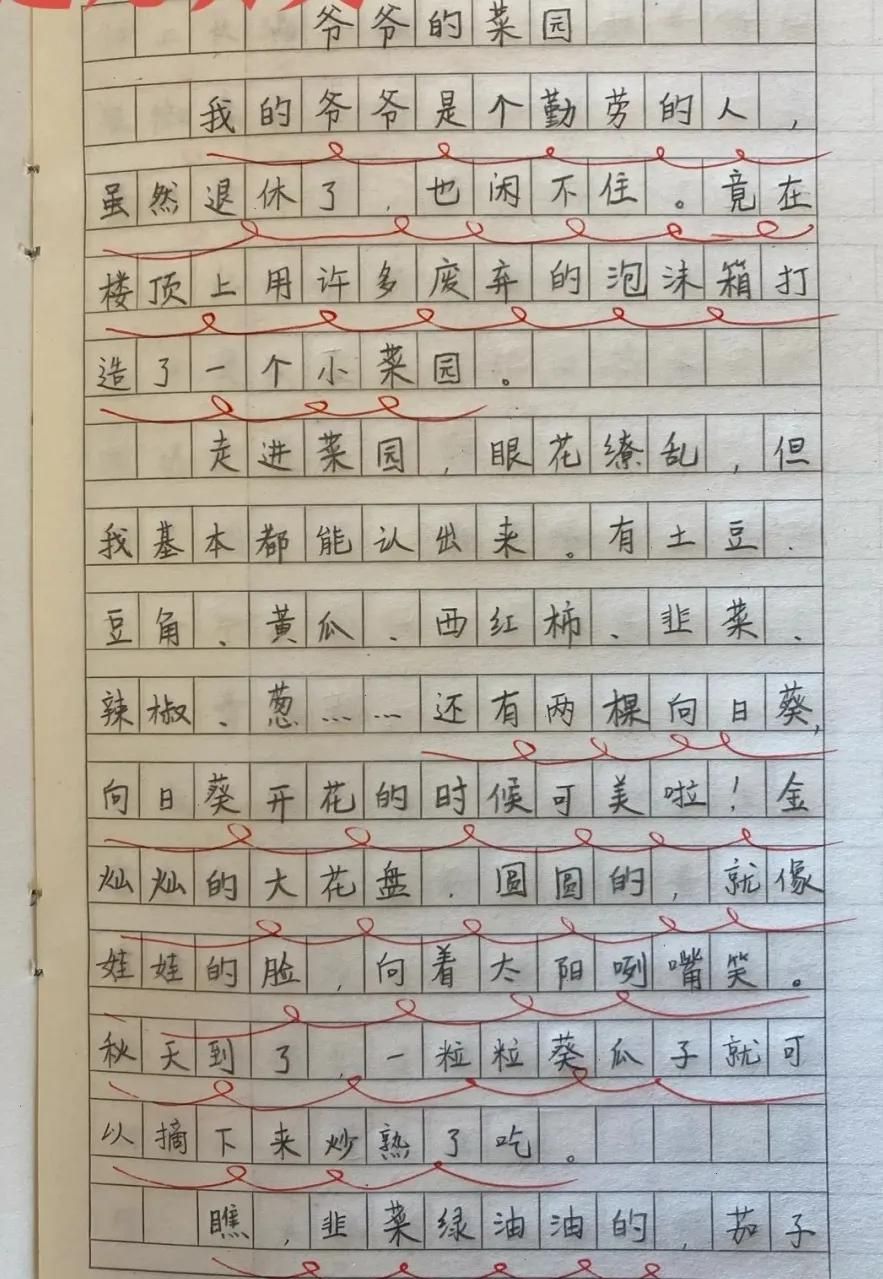 爷爷的菜园
我的爷爷是个勤劳的人，
虽然退休了，也闲不住。竟在
楼顶上用许多废弃的泡沫箱打
造了一个小菜园。
走进菜园，眼花缭乱，但
我基本都能认出来。有土豆、
豆角、黄瓜、西红柿、韭菜、
辣椒、葱……还有两棵向日葵，
向日葵开花的时候可美啦！金
灿灿的大花盘，圆圆的，就像
娃娃的脸，向着太阳咧嘴笑。
秋天到了，一粒粒葵瓜子就可
以摘下来炒熟了吃。
瞧，韭菜绿油油的，茄子